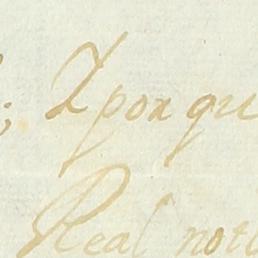 ; Xpoaqu
Real noti